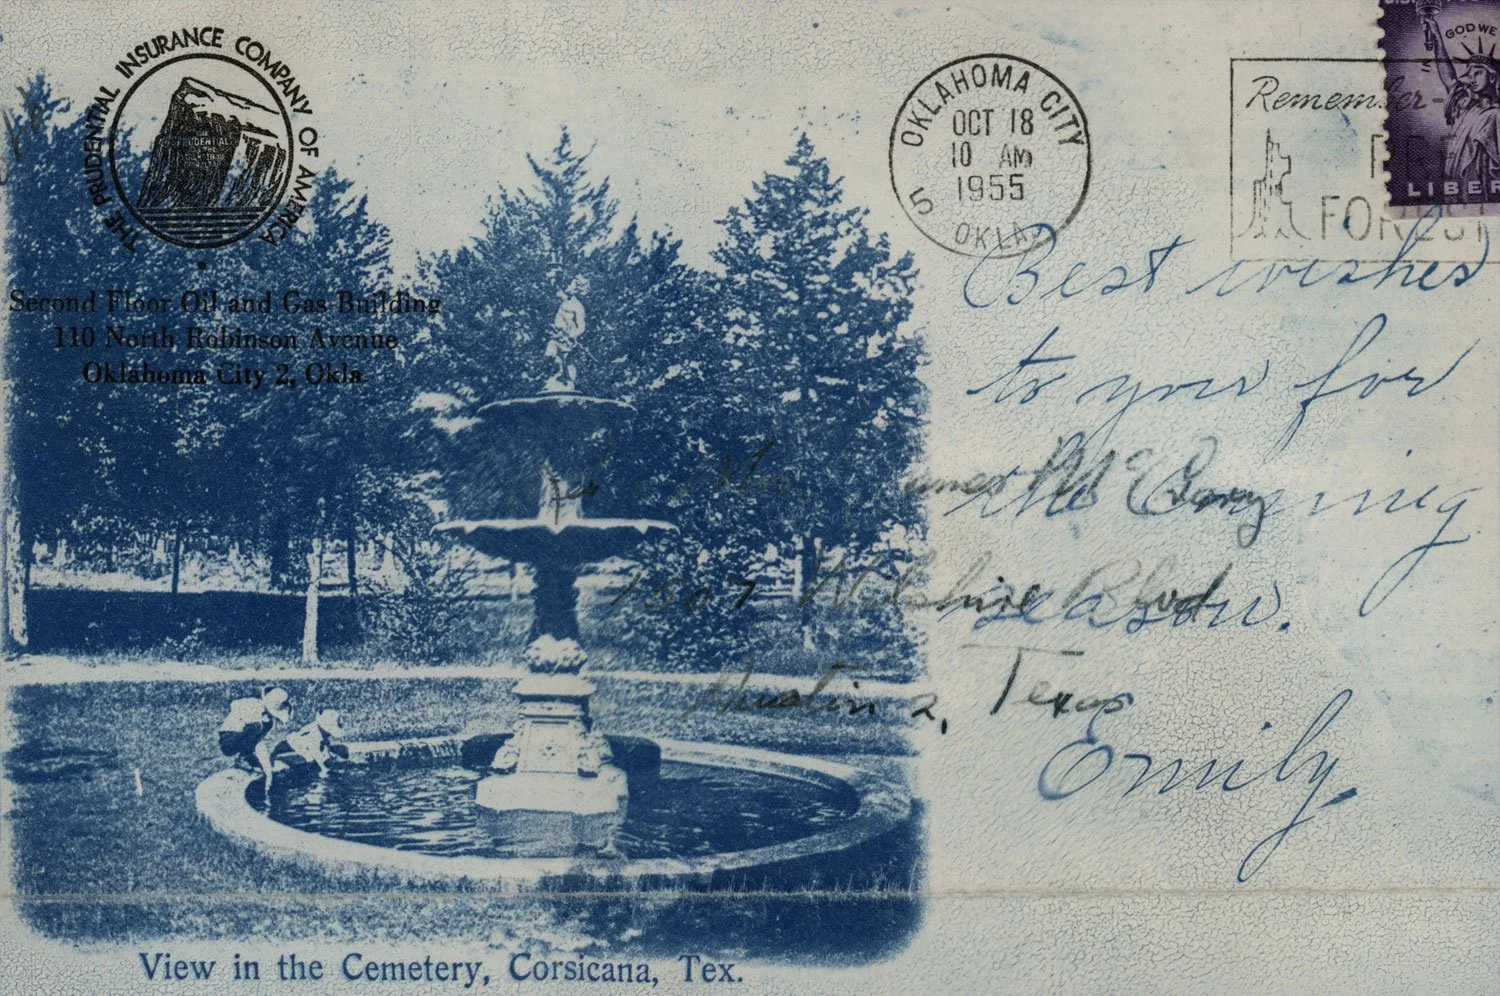 THE PRUDENTIAL INSURANCE COMPANY OF AMERICA
THE
PRUDENTIAL
Second Floor Oil and Gas Building
110 North Robinson Avenue
Oklahoma City 2, Okla.
OKLAHOMA CITY
OCT 18
10 AM
1955
5 OKLA.
Remember-
FOREST
GOD WE
LIBER
Best wishes
to your for
the Coming
season.
Emily.
Mrs. McBary
1507 Wilshire Blvd
Austin 2, Texas
View in the Cemetery, Corsicana, Tex.